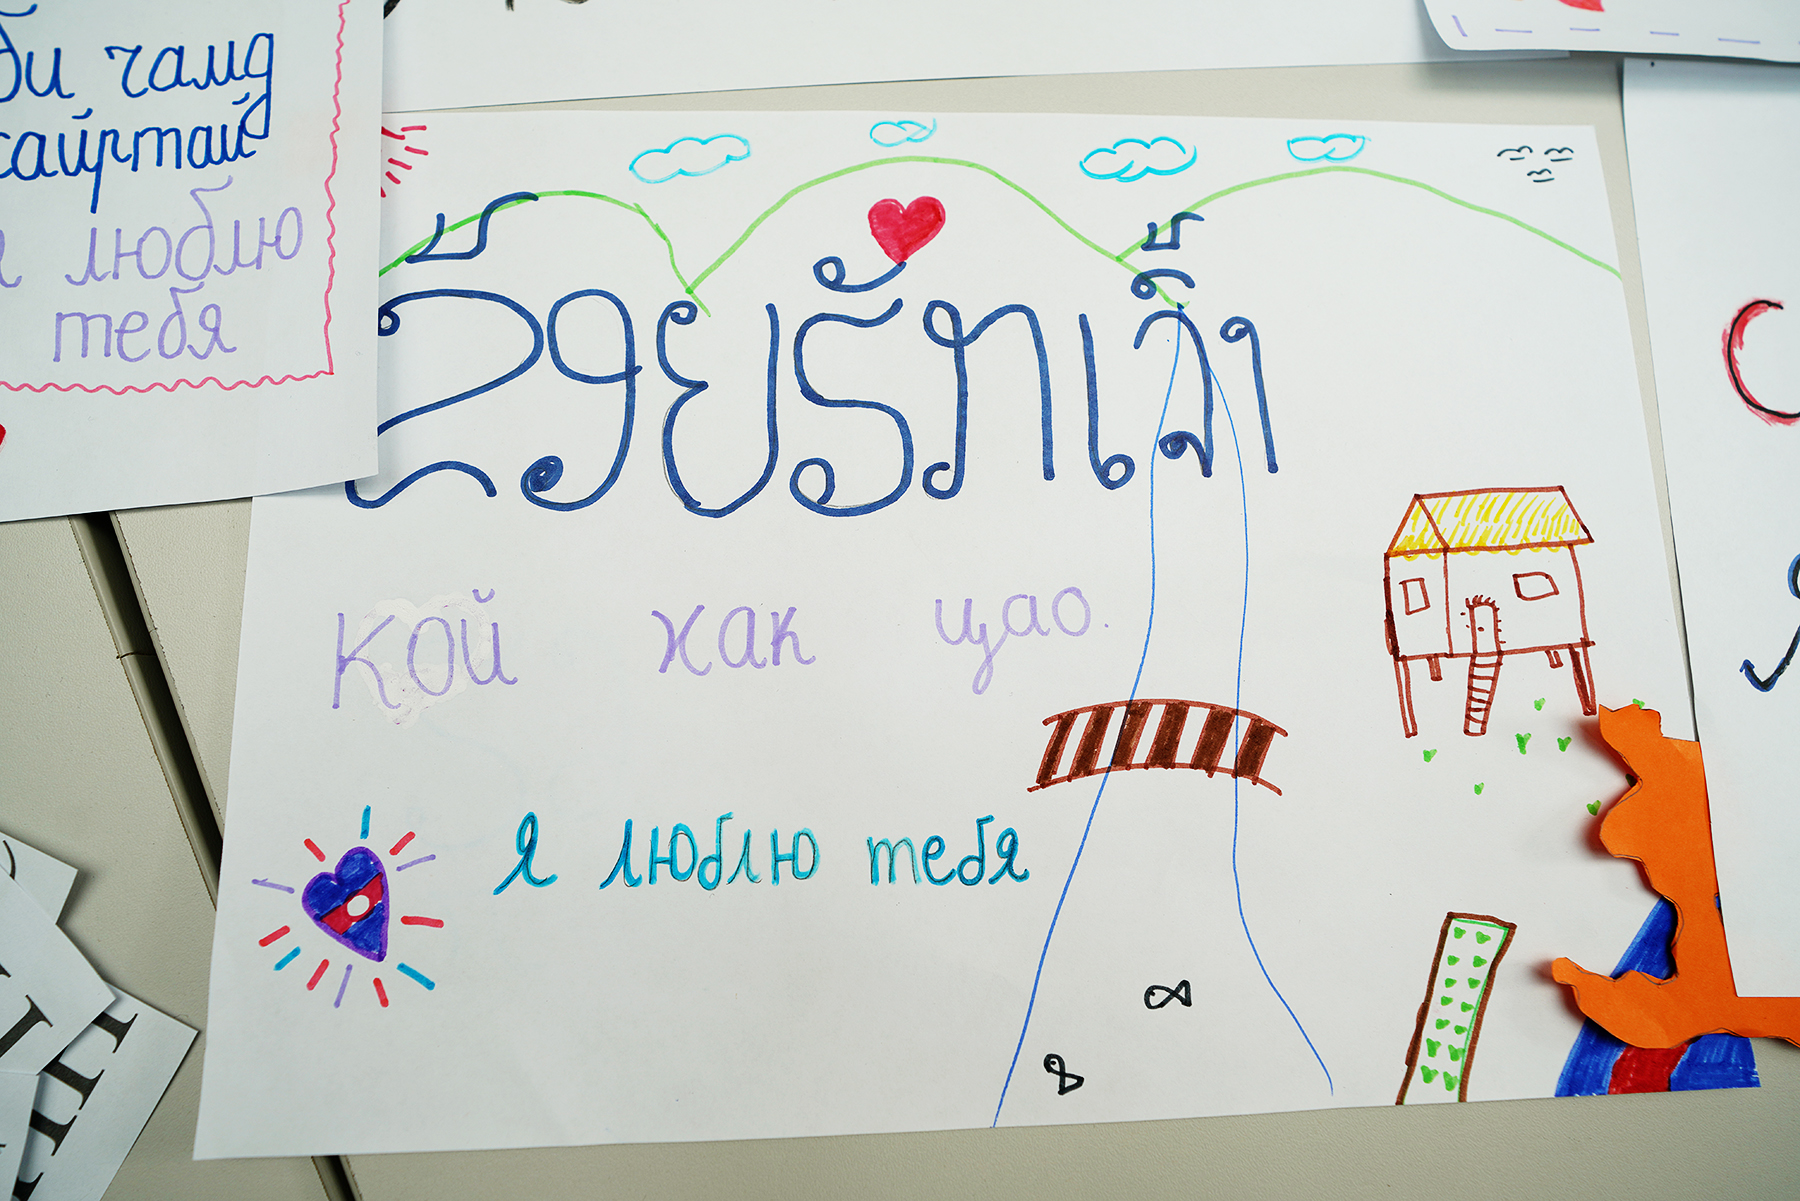 би чамд
хайртай
я люблю
тебя
ຂ້ອຍຮັກເຈົ້າ
кой хак цао.
я люблю тебя